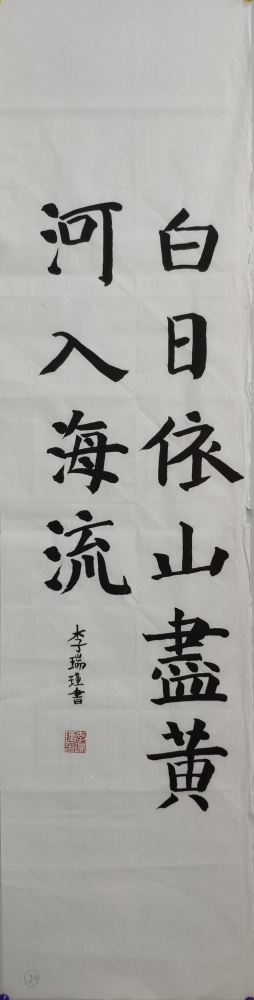 白日依山盡黄
河入海流
李瑞瑾書
24